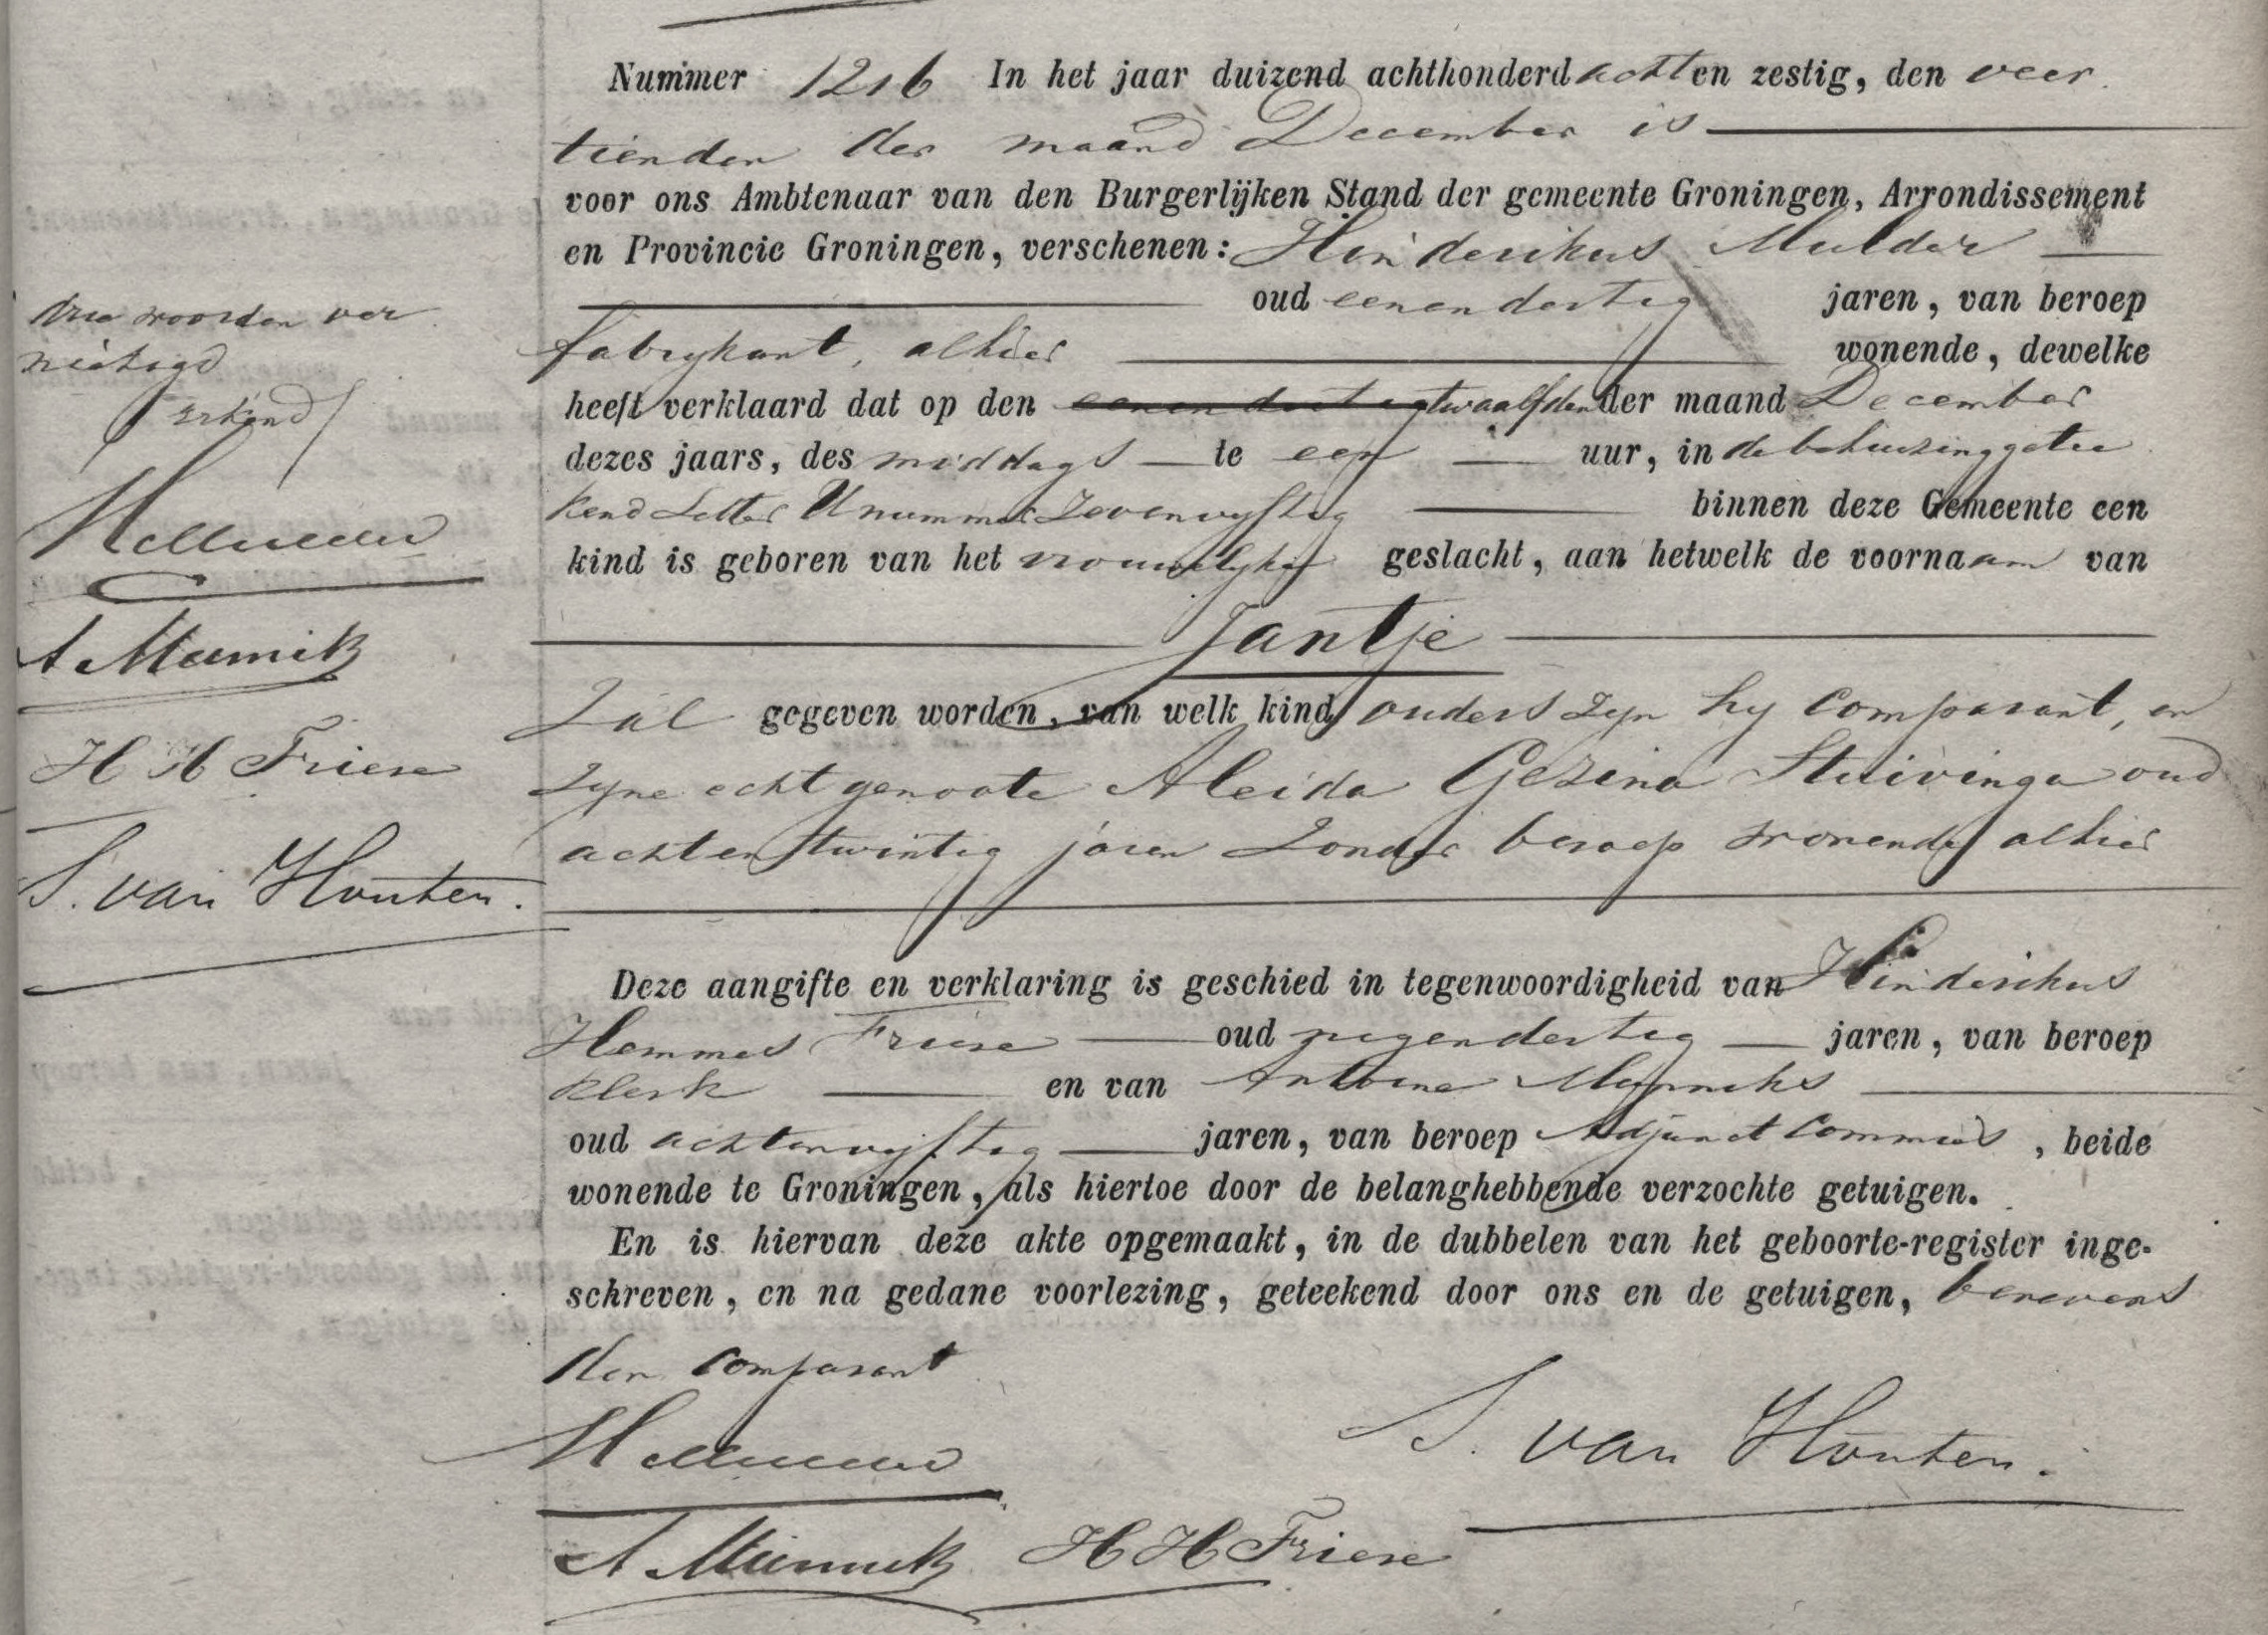 Nummer 1216 In het jaar duizend achthonderd achten zestig, den veer
tienden der maand December is
voor ons Ambtenaar van den Burgerlijken Stand der gemeente Groningen, Arrondissement
en Provincie Groningen, verschenen: Hinderikus Mulder
oud eenendertig jaren, van beroep
fabrykant, alhier wonende, dewelke
heeft verklaard dat op den eenendertig twaalfden der maand December
dezes jaars, des middags te een uur, in de behuizing getee
kend Letter U nummer Zevenvyftig binnen deze Gemeente een
kind is geboren van het vrouwelyke geslacht, aan hetwelk de voornaam van
Jantje
Zal gegeven worden, van welk kind ouders zyn hy Comparant, en
Zyne echtgenoote Aleida Gezina Stuivinga oud
achtentwintig jaren Zonder beroep wonende alhier
Deze aangifte en verklaring is geschied in tegenwoordigheid van Hinderikus
Hemmes Friese oud negendertig jaren, van beroep
Klerk en van Antoine Munniks
oud achtenvyftig jaren, van beroep Adjunct Commies, beide
wonende te Groningen, als hiertoe door de belanghebbende verzochte getuigen.
En is hiervan deze akte opgemaakt, in de dubbelen van het geboorte-register inge-
schreven, en na gedane voorlezing, geteekend door ons en de getuigen, benevens
den Comparant
HMulder
S. van Houten.
A Munnik HH Friese
Drie woorden ver
nietigd
erkend
HMulder
A Munnik
HH Friese
S. van Houten.